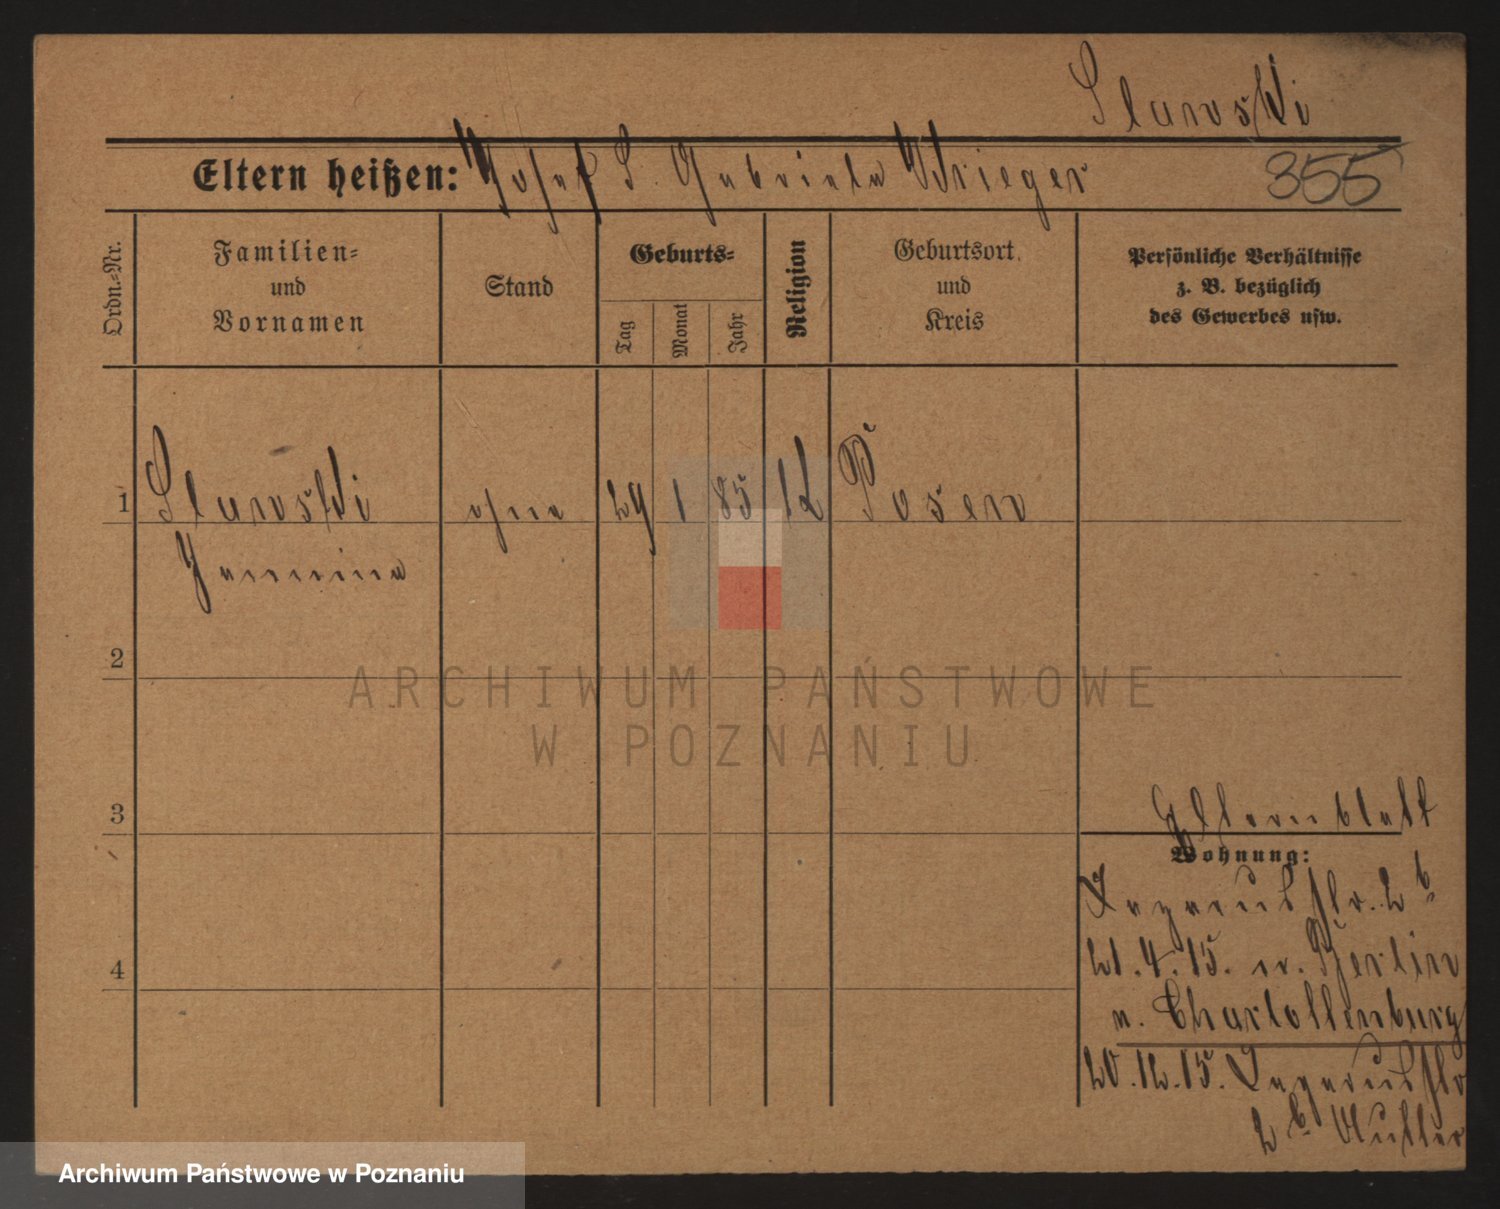 Slawski
Eltern heißen: Josef S. Gabriela Krieger
355
Ordn.-Nr.
Familien-
und
Vornamen
Stand
Geburts-
Tag
Monat
Jahr
Religion
Geburtsort
und
Kreis
Persönliche Verhältnisse
z. B. bezüglich
des Gewerbes usw.
1 Slawski ohne 29 1 85 k Posen
Janina
2
ARCHIWUM PAŃSTWOWE
W POZNANIU
3
Elternblatt
Wohnung:
str. 2b
4
21.4.15. n. Berlin
n. Charlottenburg
20.12.15.
2b Mutter
Archiwum Państwowe w Poznaniu